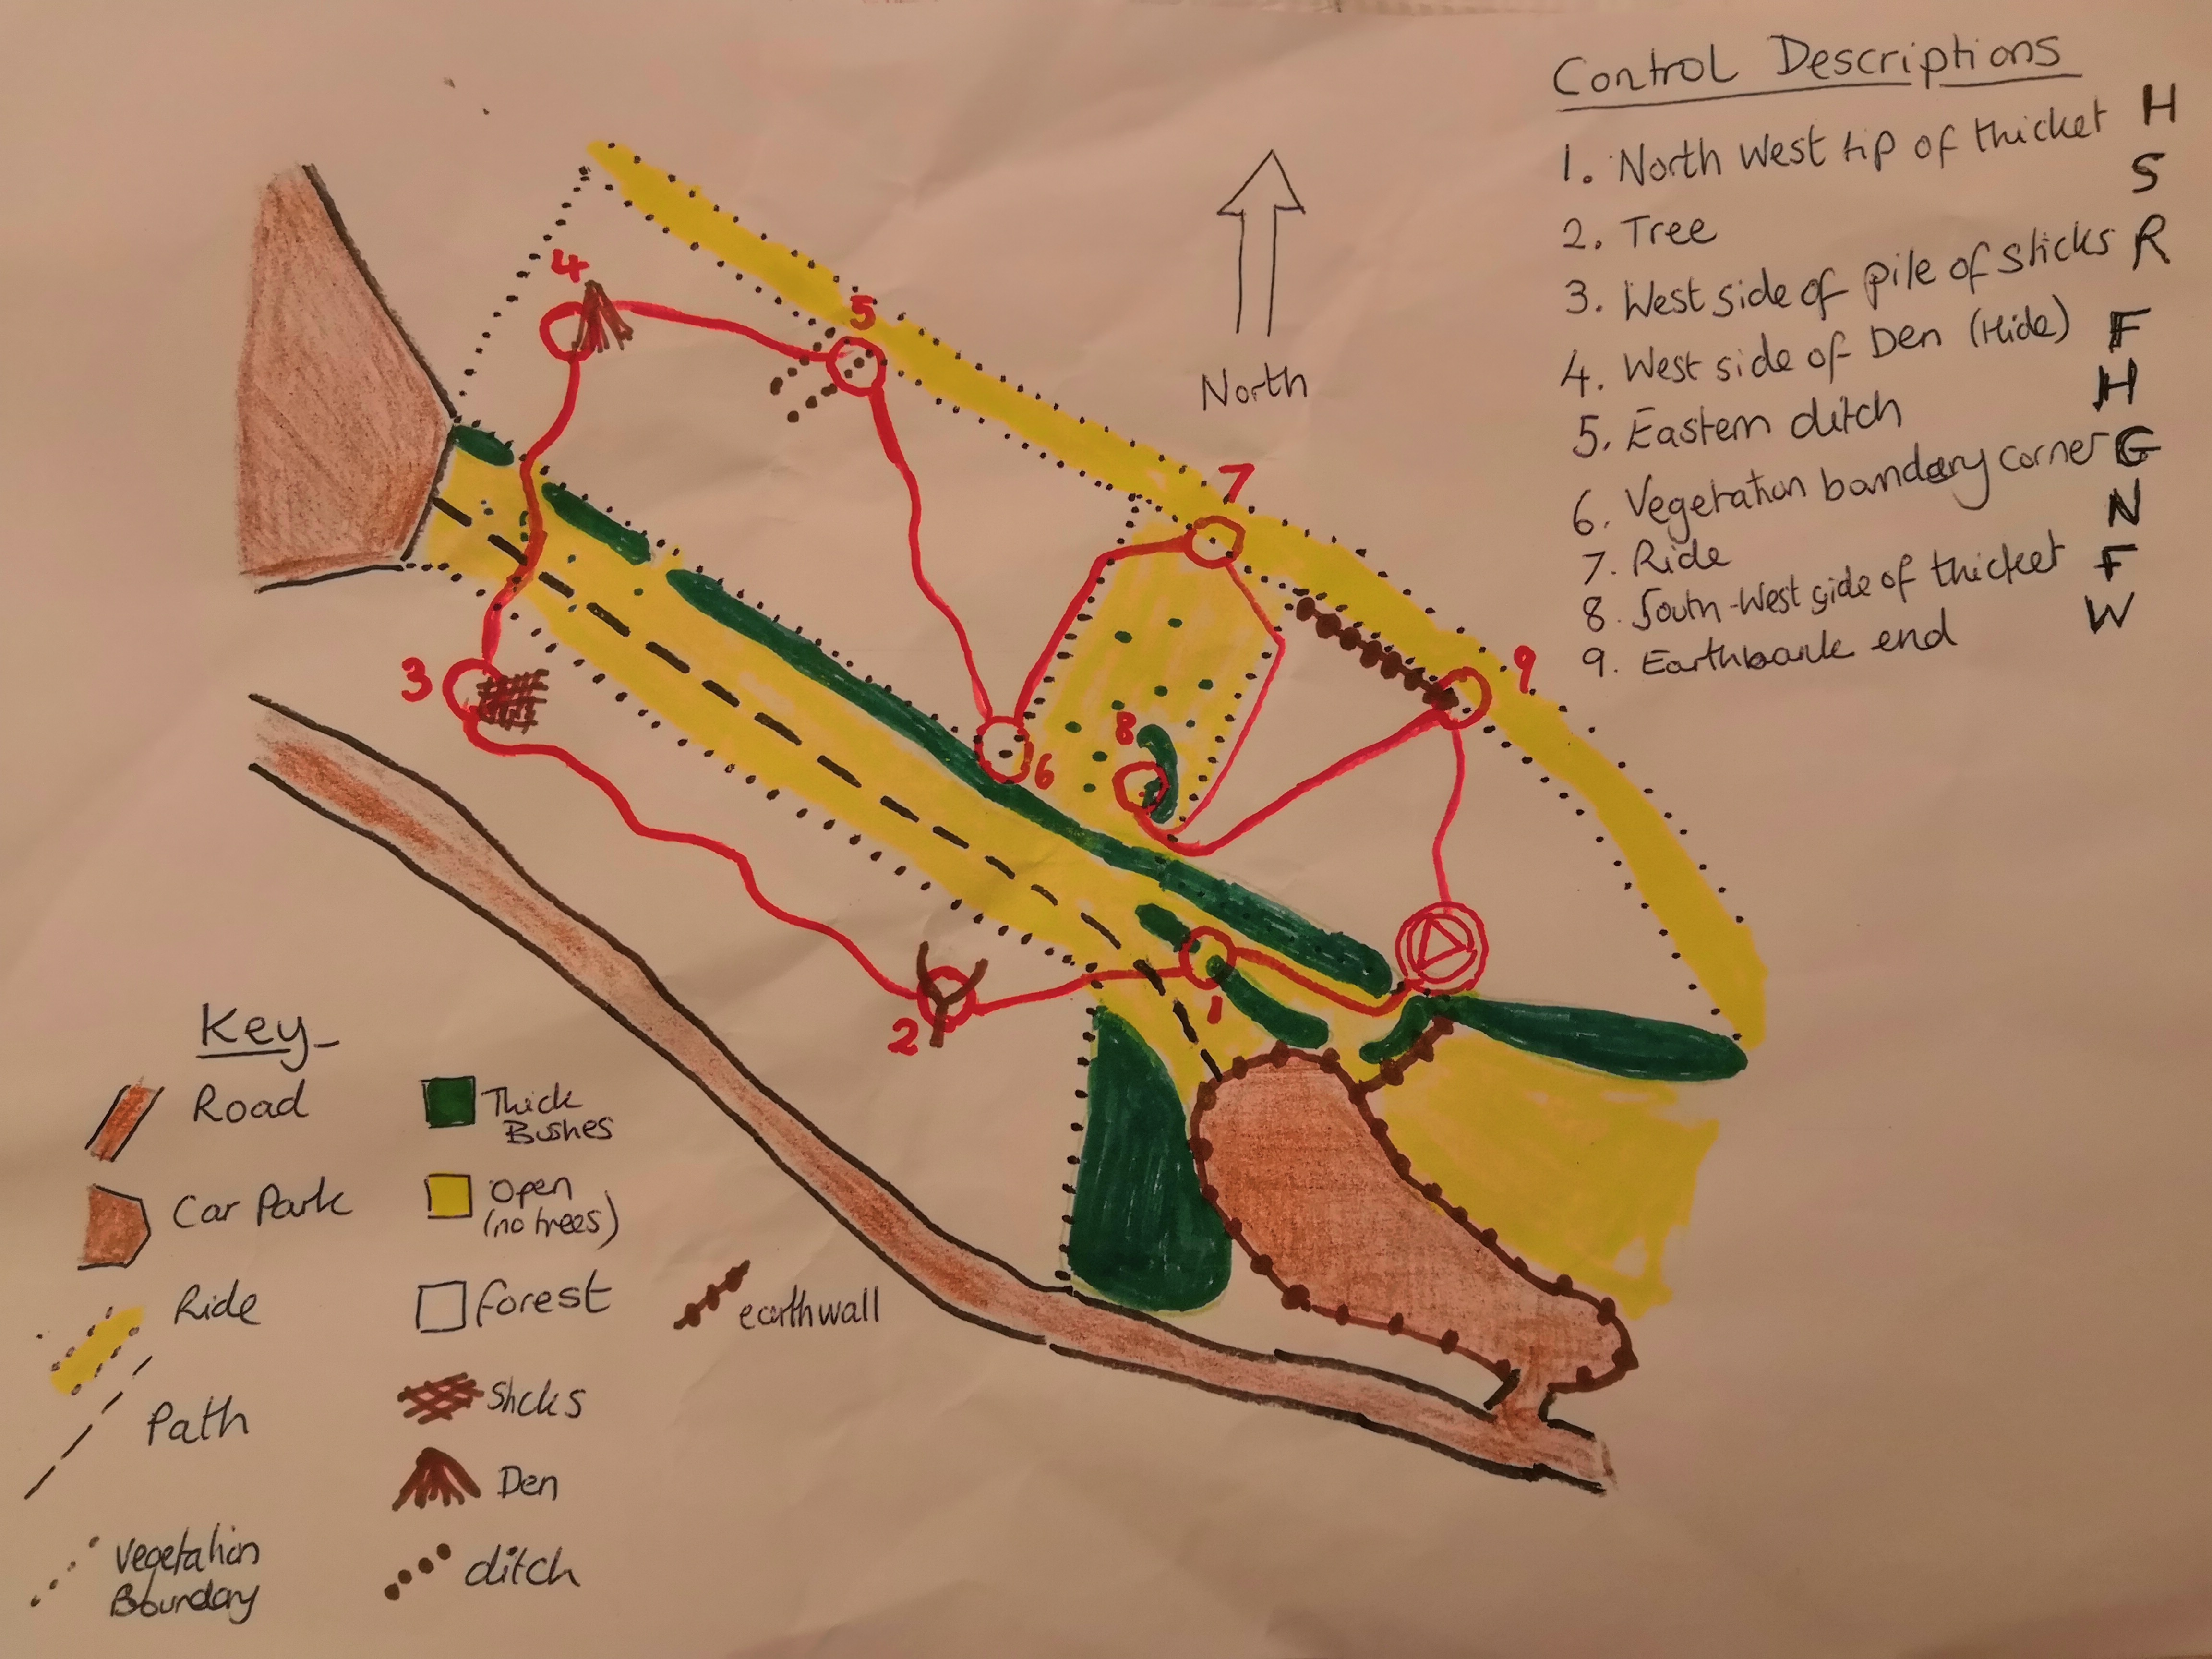 Control Descriptions
1. North West tip of thicket H
2. Tree S
3. West side of pile of sticks R
4. West side of Den (Hide) F
5. Eastern ditch H
6. Vegetation boundary corner G
7. Ride N
8. South-West side of thicket F
9. Earthbank end W
North
4
5
7
3
9
8
6
2
1
Key
Road
Car Park
Ride
Path
Vegetation
Boundary
Thick
Bushes
Open
(no trees)
forest
Sticks
Den
ditch
earthwall